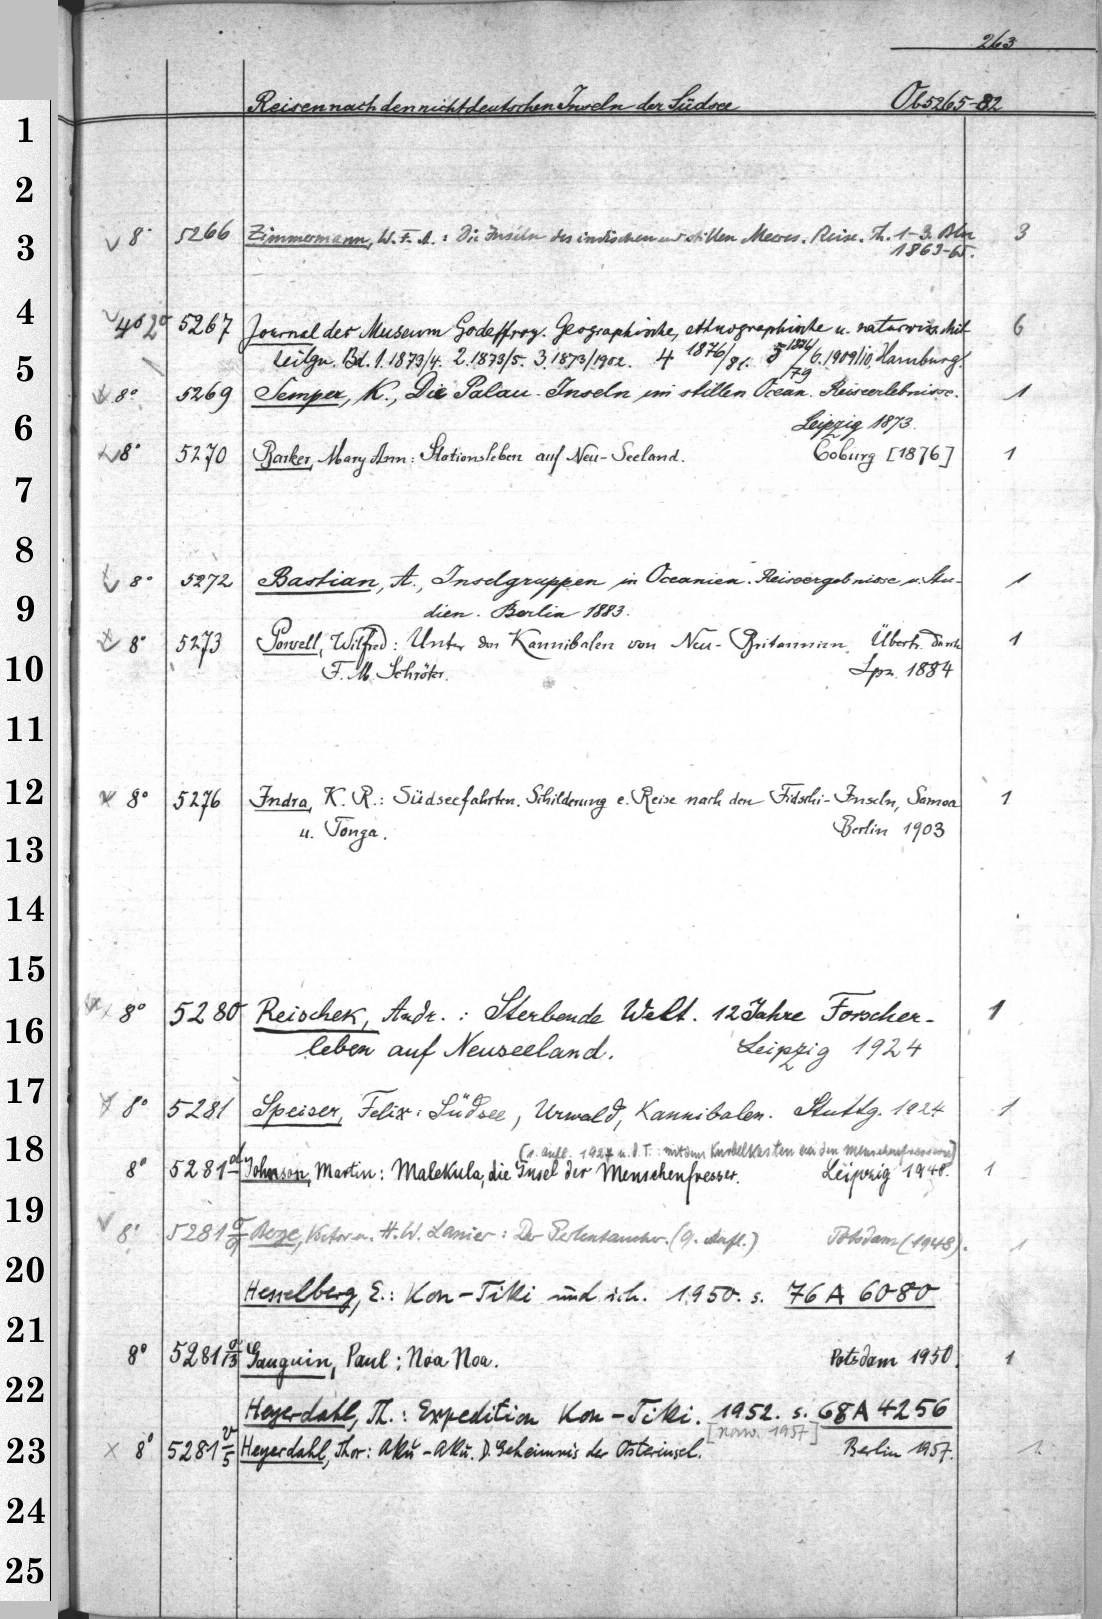 263
Reisen nach den nichtdeutschen Inseln der Südsee Ob 5265-82
1
2
3
8° 5266 Zimmermann, W. F. A.: Die Inseln des indischen und stillen Meeres. Reise. Th. 1-3. Bln 3
1863-65.
4
4° 2° 5267 Journal des Museum Godeffroy. Geographische, ethnographische u. naturwiss. Mit 6
5
teilgn. Bd. 1. 1873/4. 2. 1873/5. 3. 1873/1902. 4 1876/81. 5 1876/79 6. 1909/10. Hamburg.
8° 5269 Semper, K., Die Palau-Inseln im stillen Ocean. Reiseerlebnisse. 1
6
Leipzig 1873.
8° 5270 Barker, Mary Ann: Stationsleben auf Neu-Seeland. Coburg [1876] 1
7
8
8° 5272 Bastian, A., Inselgruppen in Oceanien. Reiseergebnisse u. Stu- 1
9
dien. Berlin 1883.
8° 5273 Powell, Wilfred: Unter den Kannibalen von Neu-Britannien. Übertr. durch 1
10
F. M. Schröter. Lpz. 1884
11
12
8° 5276 Indra, K. R.: Südseefahrten. Schilderung e. Reise nach den Fidschi-Inseln, Samoa 1
13
u. Tonga. Berlin 1903
14
15
8° 5280 Reischek, Andr.: Sterbende Welt. 12 Jahre Forscher- 1
16
leben auf Neuseeland. Leipzig 1924
17
8° 5281 Speiser, Felix: Südsee, Urwald, Kannibalen. Stuttg. 1924 1
18
[1. Aufl. 1927 u. d. T.: mit dem Kurbelkasten bei den Menschenfressern]
8° 5281 Johnson, Martin: Malekula, die Insel der Menschenfresser. Leipzig 1948. 1
19
8° 5281 Berge, Victor u. H. W. Lanier: Der Perlentaucher. (9. Aufl.) Potsdam (1948). 1
20
Hesselberg, E.: Kon-Tiki und ich. 1950. s. 76 A 6080
21
8° 5281 Gauguin, Paul: Noa Noa. Potsdam 1950. 1
22
Heyerdahl, Th.: Expedition Kon-Tiki. 1952. s. 68 A 4256
[norw. 1957]
23
8° 5281 Heyerdahl, Thor: Aku-Aku. D. Geheimnis der Osterinsel. Berlin 1957. 1
24
25